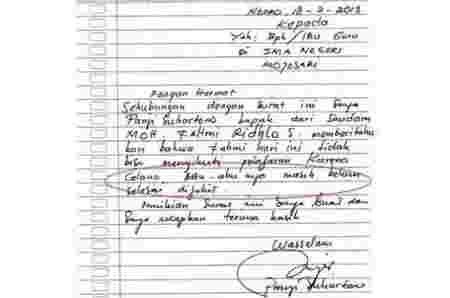 Ngoro, 18-2-2013
Kepada
Yth: Bpk/Ibu Guru
Di SMA NEGERI
MOJOSARI
Dengan Hormat
Sehubungan dengan surat ini saya
Panji Suhartono bapak dari Saudara
MOH. Fahmi Ridglo S. memberitahu
kan bahwa Fahmi hari ini tidak
bisa mengikuti pelajaran karena
Celana abu-abu nya masih belum
selesai dijahit.
Demikian Surat ini saya buat dan
Saya ucapkan terima kasih
Wassalam
Panji Suhartono